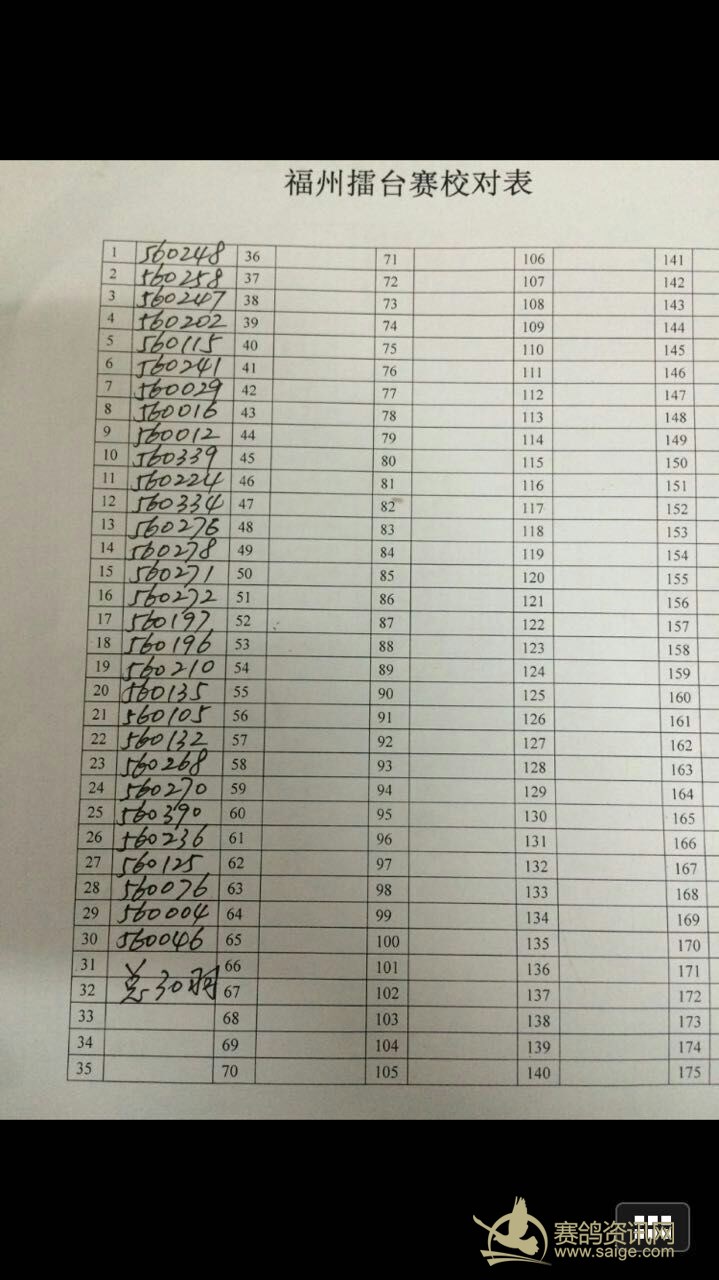 福州擂台赛校对表
1 560248 36 71 106 141
2 560258 37 72 107 142
3 560247 38 73 108 143
4 560202 39 74 109 144
5 560115 40 75 110 145
6 560241 41 76 111 146
7 560029 42 77 112 147
8 560016 43 78 113 148
9 560012 44 79 114 149
10 560339 45 80 115 150
11 560224 46 81 116 151
12 560334 47 82 117 152
13 560276 48 83 118 153
14 560278 49 84 119 154
15 560271 50 85 120 155
16 560272 51 86 121 156
17 560197 52 87 122 157
18 560196 53 88 123 158
19 560210 54 89 124 159
20 560135 55 90 125 160
21 560105 56 91 126 161
22 560132 57 92 127 162
23 560268 58 93 128 163
24 560270 59 94 129 164
25 560390 60 95 130 165
26 560236 61 96 131 166
27 560125 62 97 132 167
28 560076 63 98 133 168
29 560004 64 99 134 169
30 560046 65 100 135 170
31 66 101 136 171
32 总30羽 67 102 137 172
33 68 103 138 173
34 69 104 139 174
35 70 105 140 175
赛鸽资讯网
www.saige.com